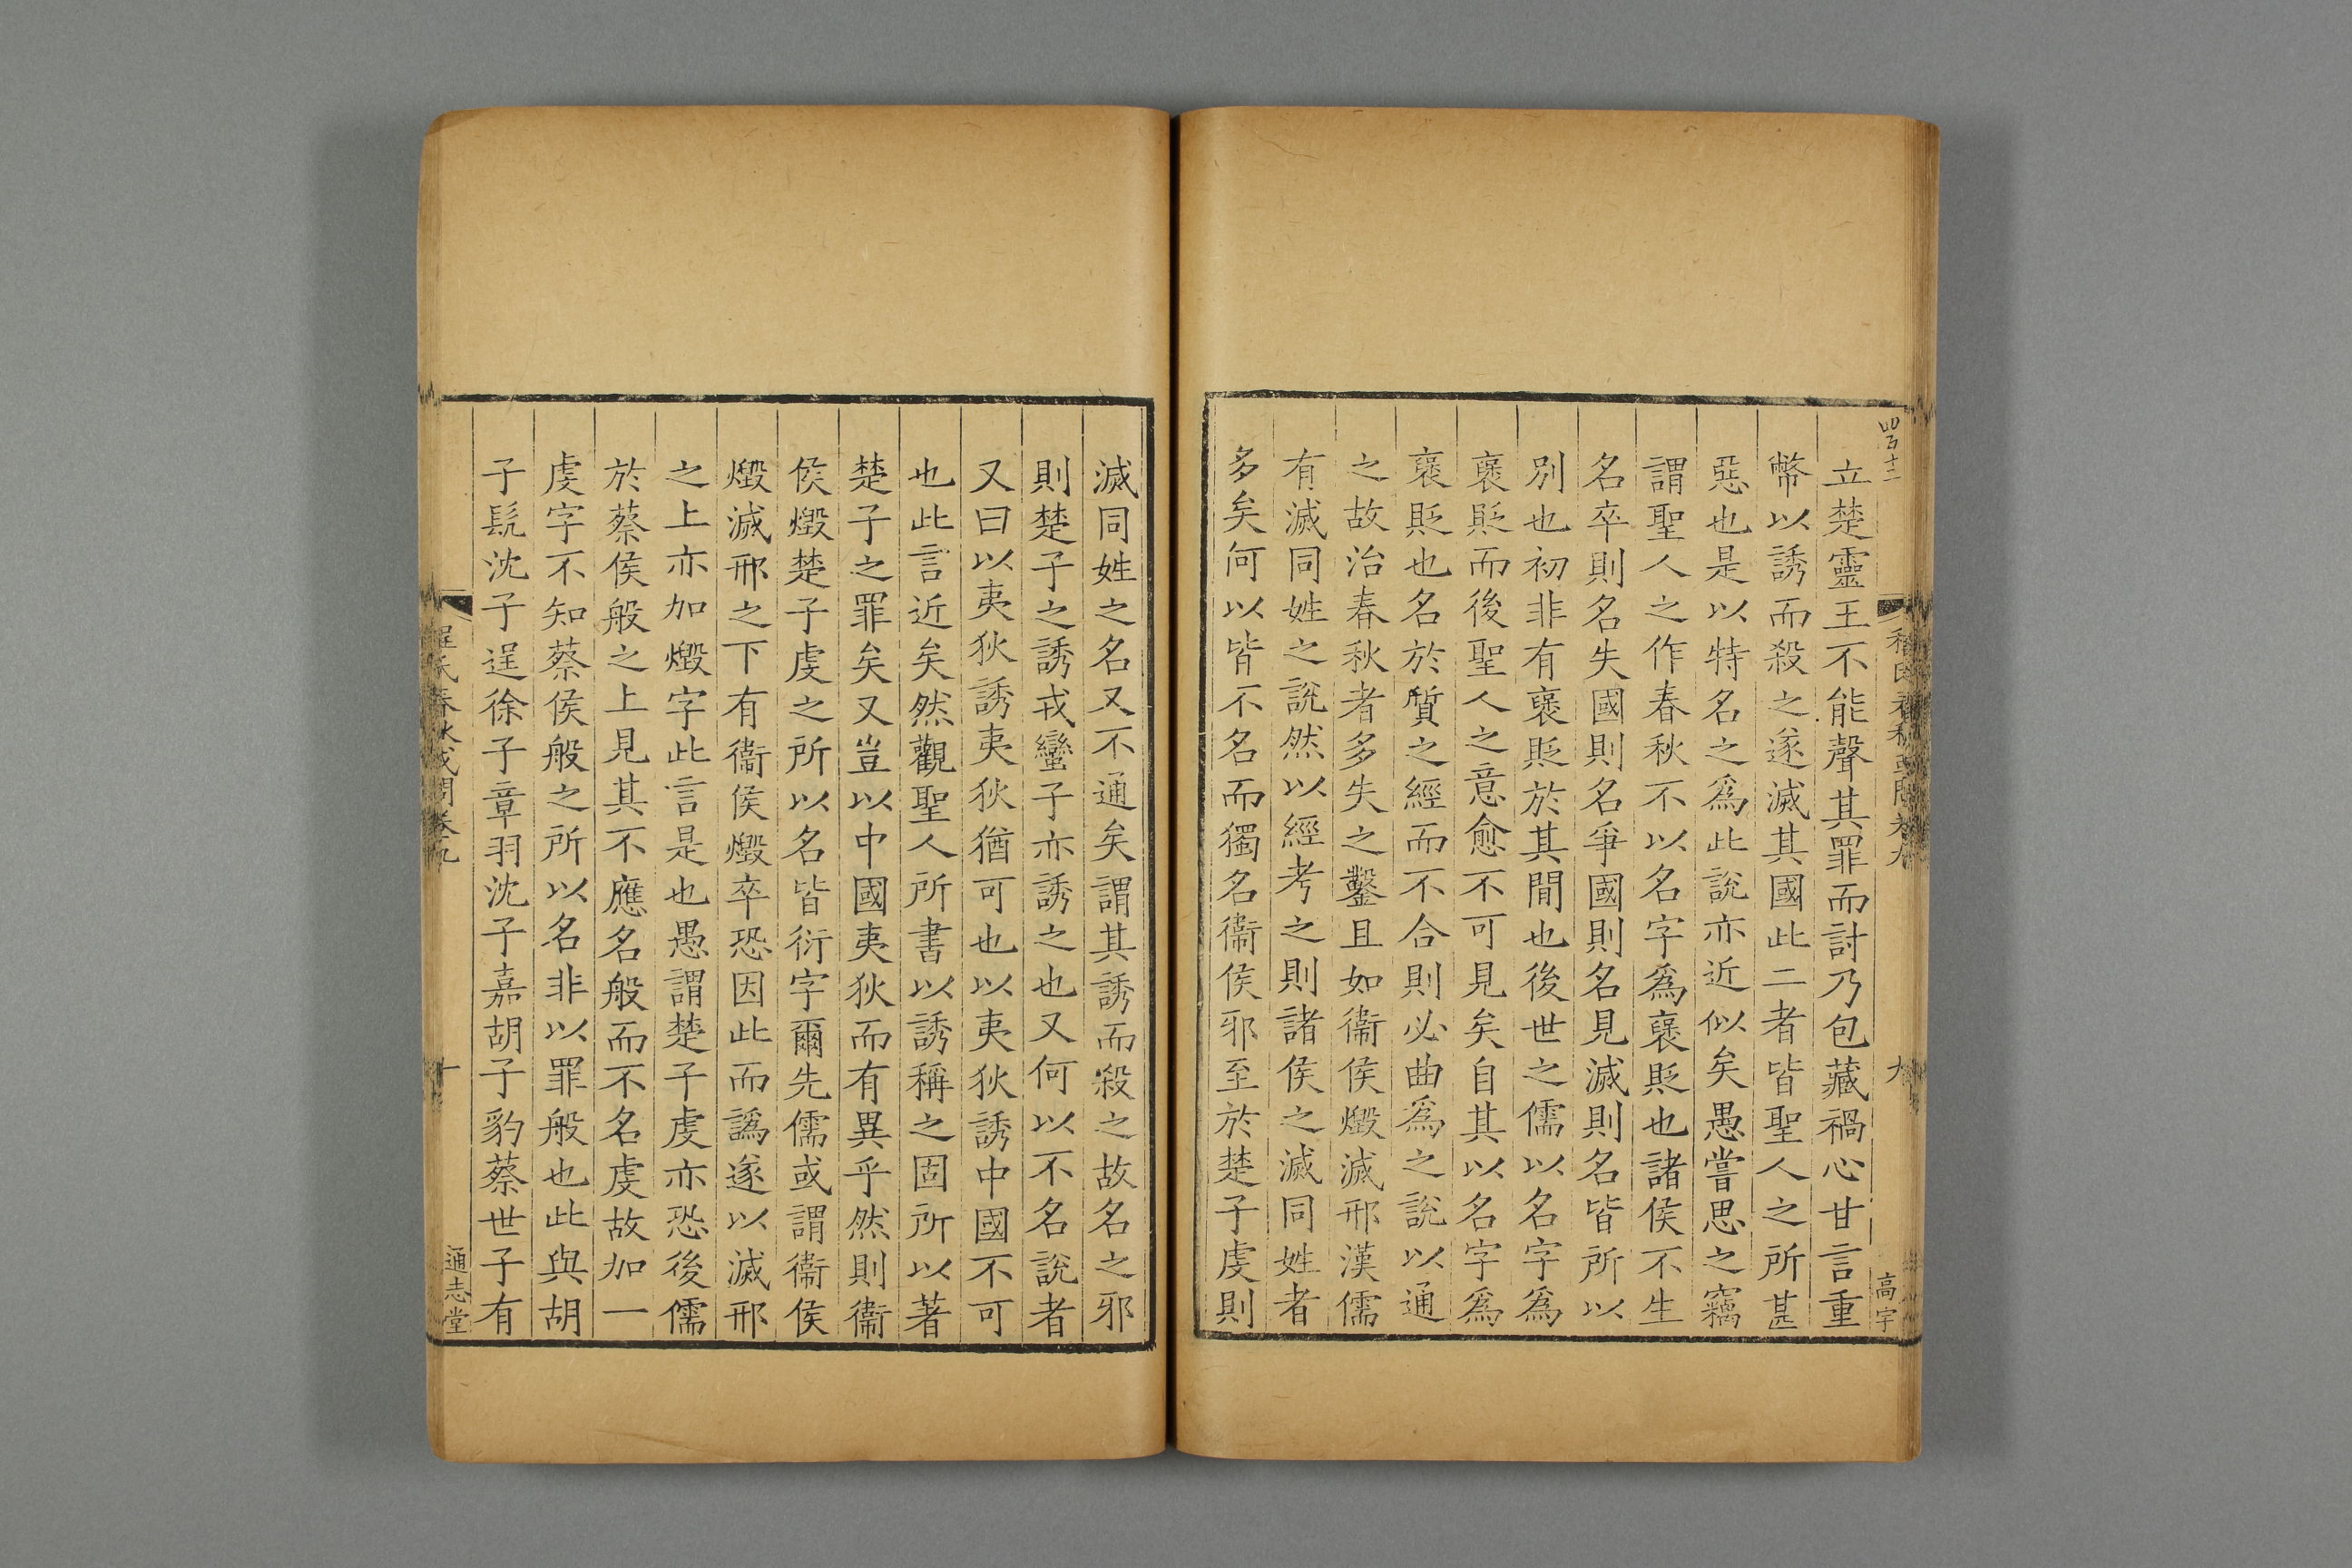 立楚靈王不能聲其罪而討乃包藏禍心甘言重
幣以誘而殺之遂滅其國此二者皆聖人之所甚
惡也是以特名之爲此說亦近似矣愚嘗思之竊
謂聖人之作春秋不以名字爲襃貶也諸侯不生
名卒則名失國則名爭國則名見滅則名皆所以
別也初非有襃貶於其間也後世之儒以名字爲
襃貶而後聖人之意愈不可見矣自其以名字爲
襃貶也名於質之經而不合則必曲爲之說以通
之故治春秋者多失之鑿且如衞侯燬滅邢漢儒
有滅同姓之說然以經考之則諸侯之滅同姓者
多矣何以皆不名而獨名衞侯邪至於楚子虔則
滅同姓之名又不通矣謂其誘而殺之故名之邪
則楚子之誘戎蠻子亦誘之也又何以不名說者
又曰以夷狄誘夷狄猶可也以夷狄誘中國不可
也此言近矣然觀聖人所書以誘稱之固所以著
楚子之罪矣又豈以中國夷狄而有異乎然則衞
侯燬楚子虔之所以名皆衍字爾先儒或謂衞侯
燬滅邢之下有衞侯燬卒恐因此而譌遂以滅邢
之上亦加燬字此言是也愚謂楚子虔亦恐後儒
於蔡侯般之上見其不應名般而不名虔故加一
虔字不知蔡侯般之所以名非以罪般也此與胡
子髡沈子逞徐子章羽沈子嘉胡子豹蔡世子有
程氏春秋或問卷九
十
通志堂
四百十二
九
高宇